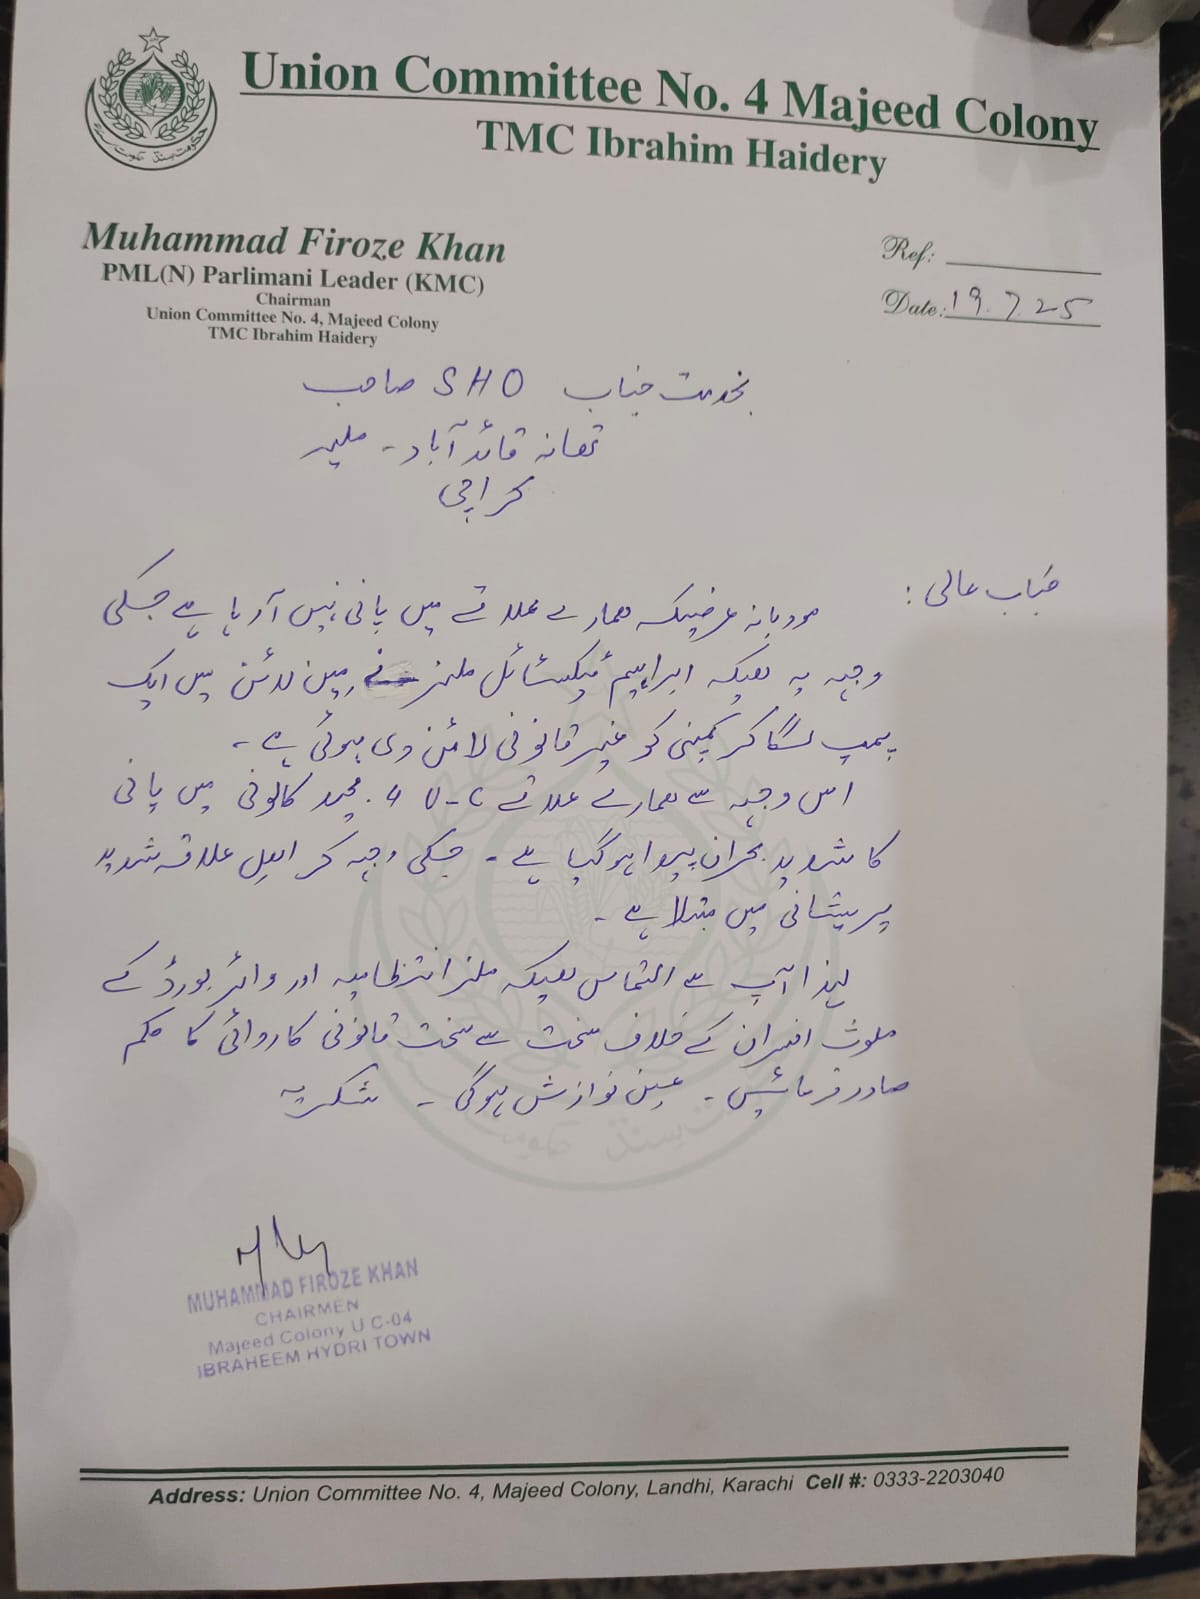 Union Committee No. 4 Majeed Colony
TMC Ibrahim Haidery
حکومت سندھ
Muhammad Firoze Khan
PML(N) Parlimani Leader (KMC)
Chairman
Union Committee No. 4, Majeed Colony
TMC Ibrahim Haidery
Ref:
Date: 19.7.25
بخدمت جناب SHO صاحب
تھانہ قائد آباد۔ ملیر
کراچی
جناب عالی:
مودبانہ عرضیکہ ہمارے علاقے میں پانی نہیں آرہا ہے جسکی
وجہ یہ ہیکہ ابراہیم ٹیکسٹائل ملز نے مین لائن میں ایک
پمپ لگا کر کمپنی کو غیر قانونی لائن دی ہوئی ہے۔
اس وجہ سے ہمارے علاقے U-C 4 مجید کالونی میں پانی
کا شدید بحران پیدا ہوگیا ہے۔ جسکی وجہ کر اہل علاقہ شدید
پریشانی میں مبتلا ہے۔
لہذا آپ سے التماس ہیکہ ملز انتظامیہ اور واٹر بورڈ کے
ملوث افسران کے خلاف سخت سے سخت قانونی کاروائی کا حکم
صادر فرمائیں۔ عین نوازش ہوگی۔ شکریہ
MUHAMMAD FIROZE KHAN
CHAIRMEN
Majeed Colony U C-04
IBRAHEEM HYDRI TOWN
Address: Union Committee No. 4, Majeed Colony, Landhi, Karachi Cell #: 0333-2203040